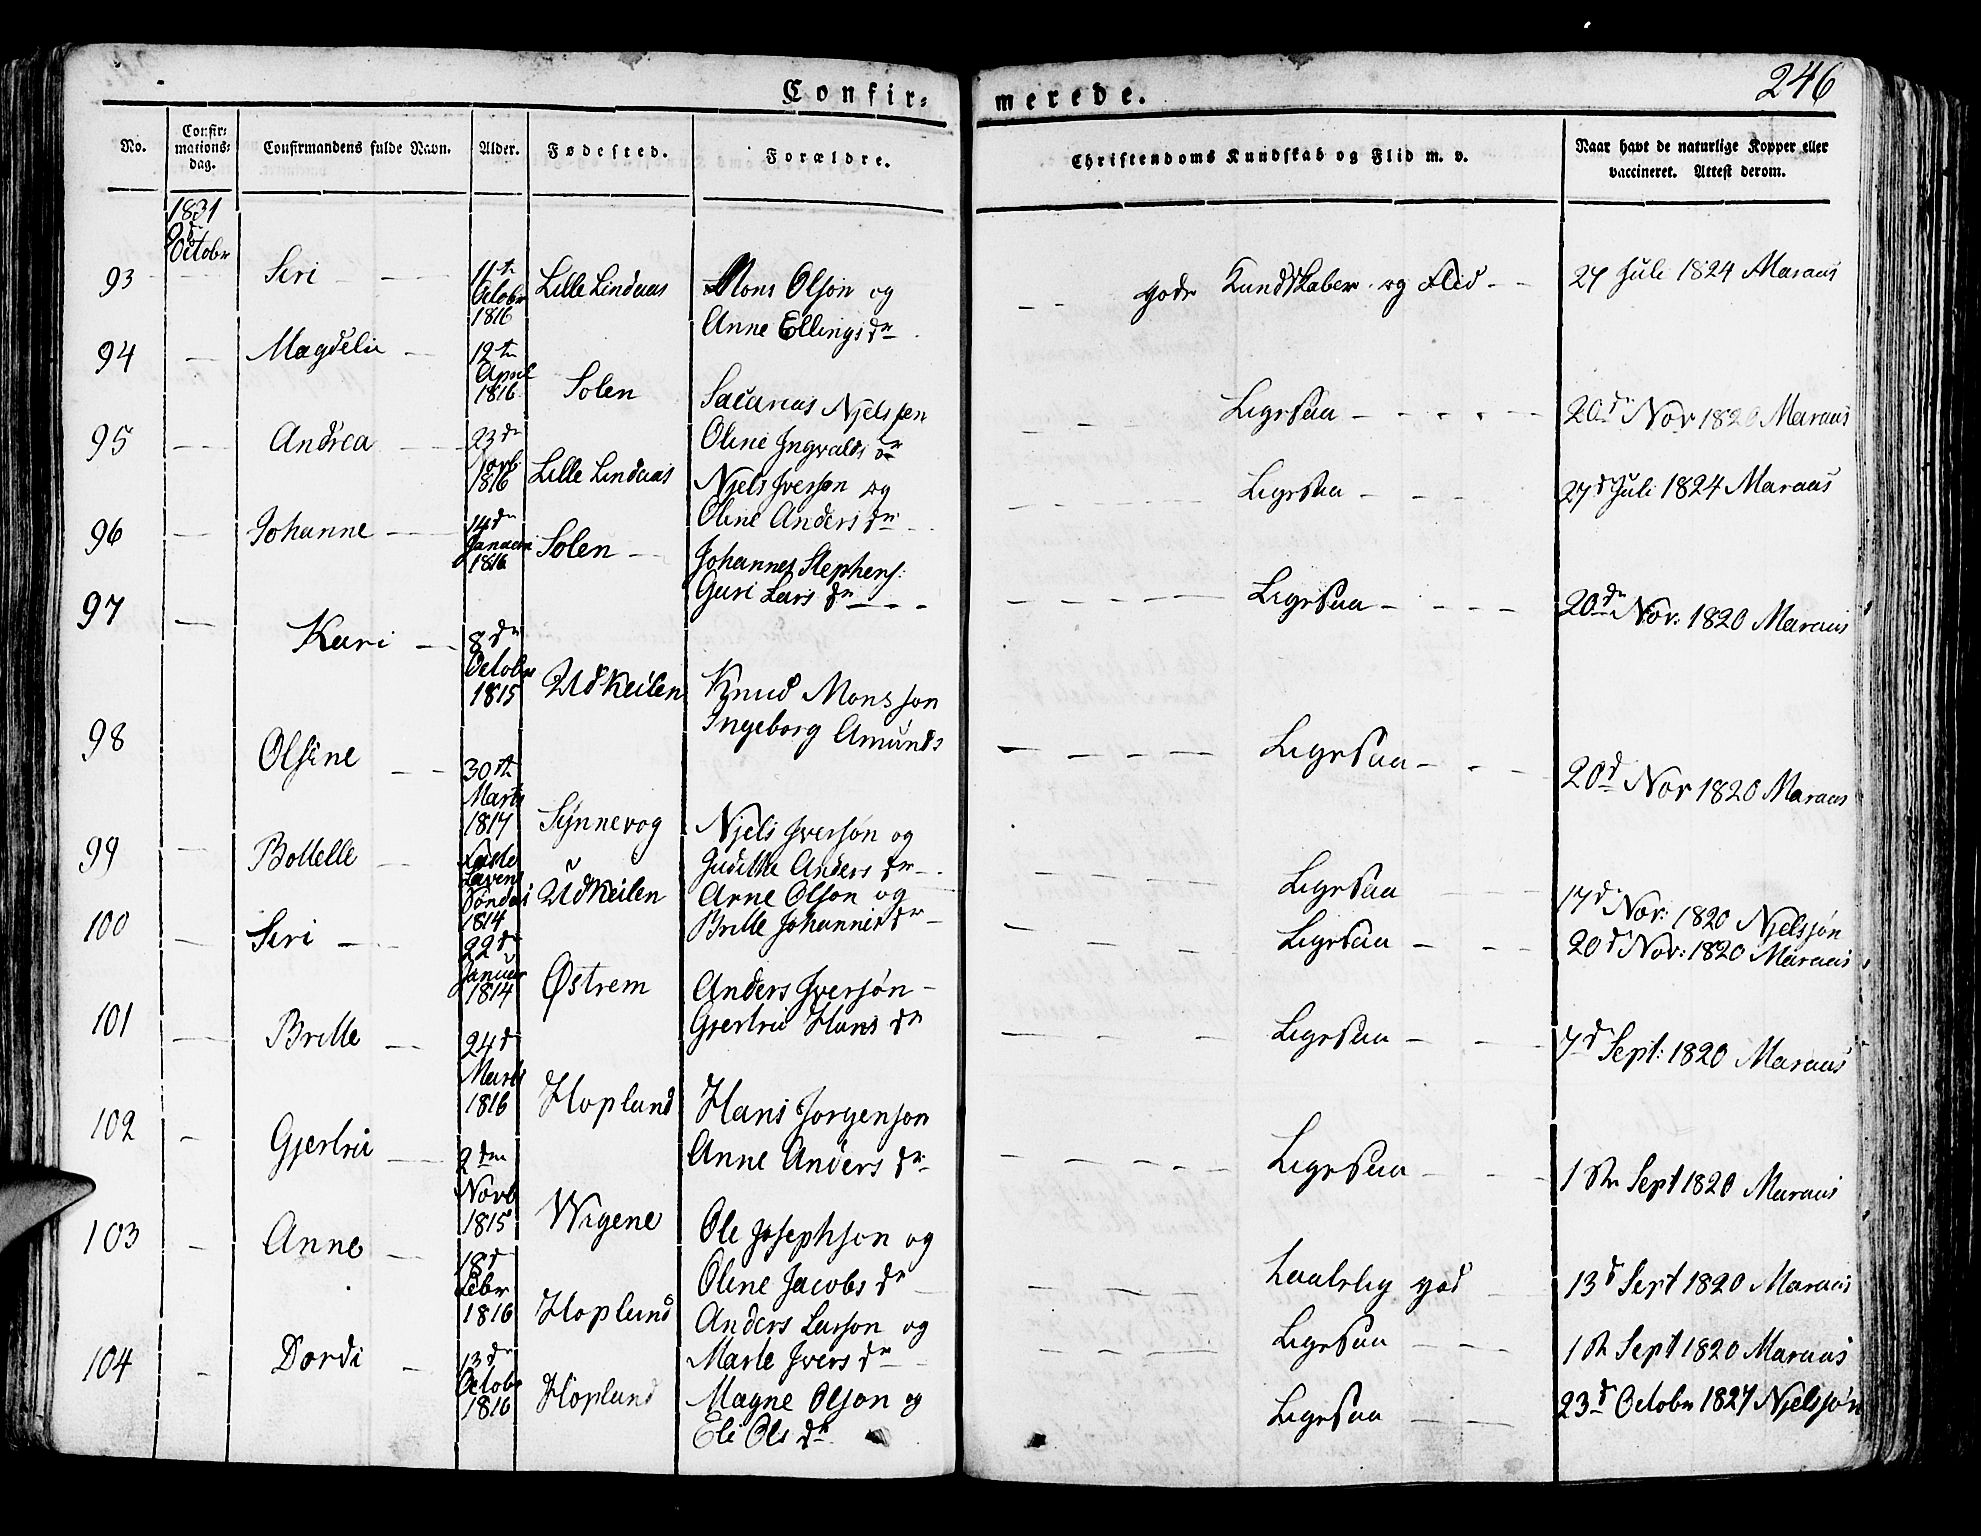 246
Confir: merede.
No. Confir: mations: dag. Confirmandens fulde Navn. Alder. Fødested. Forældre. Christendoms Kundskab og Flid m. v. Naar havt de naturlige Kopper eller vaccineret. Attest derom.
1831
Octobr
93 Siri 11te Octobr 1816 Lille Lindaas Mons Olson og Anne Ellings dr gode Kundskaber og Flid 27 Juli 1824 Maraas
94 Magdeli 12te April 1816 Solen Sacarias Njelssen Oline Ingvalds dr Ligesaa 20de Nov 1820 Maraas
95 Andrea 23de Novb 1816 Lille Lindaas Njels Iverson og Oline Anders dr Ligesaa 27d Juli 1824 Maraas
96 Johanne 14de Januari 1816 Solen Johannes Stephens: Guri Lars dr Ligesaa 20de Nov: 1820 Maraas
97 Kari 8de Octobr 1815 Udkeilen Knud Monsson Ingeborg Amunds Ligesaa 20d Nov 1820 Maraas
98 Olsine 30te Marts 1817 Synnevog Njels Iverson og Judithe Anders dr Ligesaa 17d Nov: 1820 Njelsjøn
99 Botlelle Faste Lavens Søndag 1814 Udkeilen Arne Olson og Britte Johannes dr Ligesaa 20d Nov: 1820 Maraas
100 Siri 22de Januar 1814 Østrem Anders Iversøn Gjertru Hans dr Ligesaa 7d Sept: 1820 Maraas
101 Britte 24d Marts 1816 Hoplund Hans Jorgenson Anne Anders dr Ligesaa 1ste Sept 1820 Maraas
102 Gjertru 2den Novb 1815 Wigene Ole Josephson og Oline Jacobs dr god 13d Sept 1820 Maraas
103 Anne 18d Febr 1816 Hoplund Anders Larson og Marte Ivers dr Ligesaa 1st Sept 1820 Maraas
104 Dordi 13de Octobr 1816 Hoplund Magne Olson og Eli Ols dr Ligesaa 23d Octobr 1827 Njelsjøn